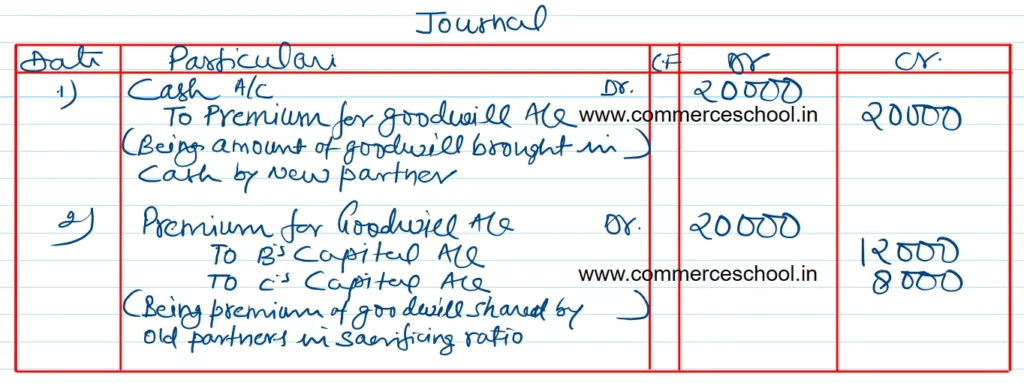 Journal
Date Particulars C.F Dr Cr.
1) Cash A/c Dr. 20000
To Premium for goodwill A/c www.commerceschool.in 20000
(Being amount of goodwill brought in)
Cash by New partner
2) Premium for Goodwill A/c Dr. 20000
To B's Capital A/c 12000
To C's Capital A/c www.commerceschool.in 8000
(Being premium of goodwill shared by)
old partners in sacrificing ratio